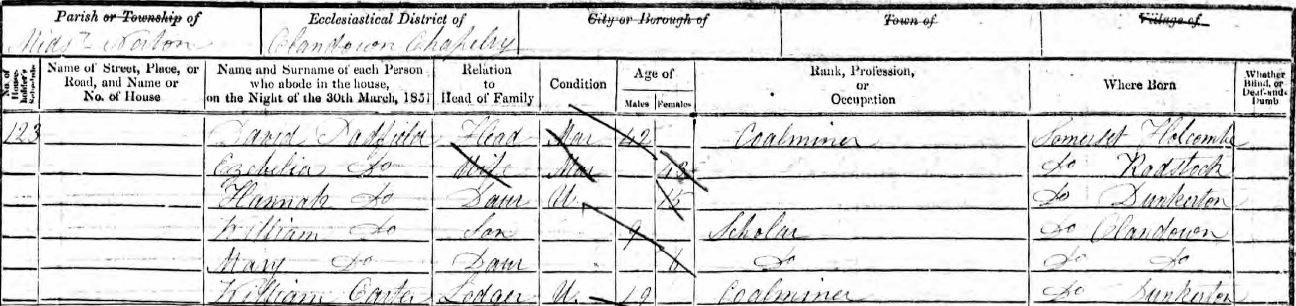 Parish or Township of Ecclesiastical District of City or Borough of Town of Village of
Midsr Norton Clandown Chapelry
No. of House-holder's Schedule Name of Street, Place, or Road, and Name or No. of House Name and Surname of each Person who abode in the house, on the Night of the 30th March, 1851 Relation to Head of Family Condition Age of Males Females Rank, Profession, or Occupation Where Born Whether Blind, or Deaf-and-Dumb
123 David Dadfield Head Mar 42 Coalminer Somerset Holcombe
Ezebelia Do Wife Mar Do Radstock
Hannah Do Daur U 15 Do Dunkerton
William Do Son 9 Scholar Do Clandown
Mary Do Daur 6 Do Do Do
William Carter Lodger U 19 Coalminer Do Dunkerton